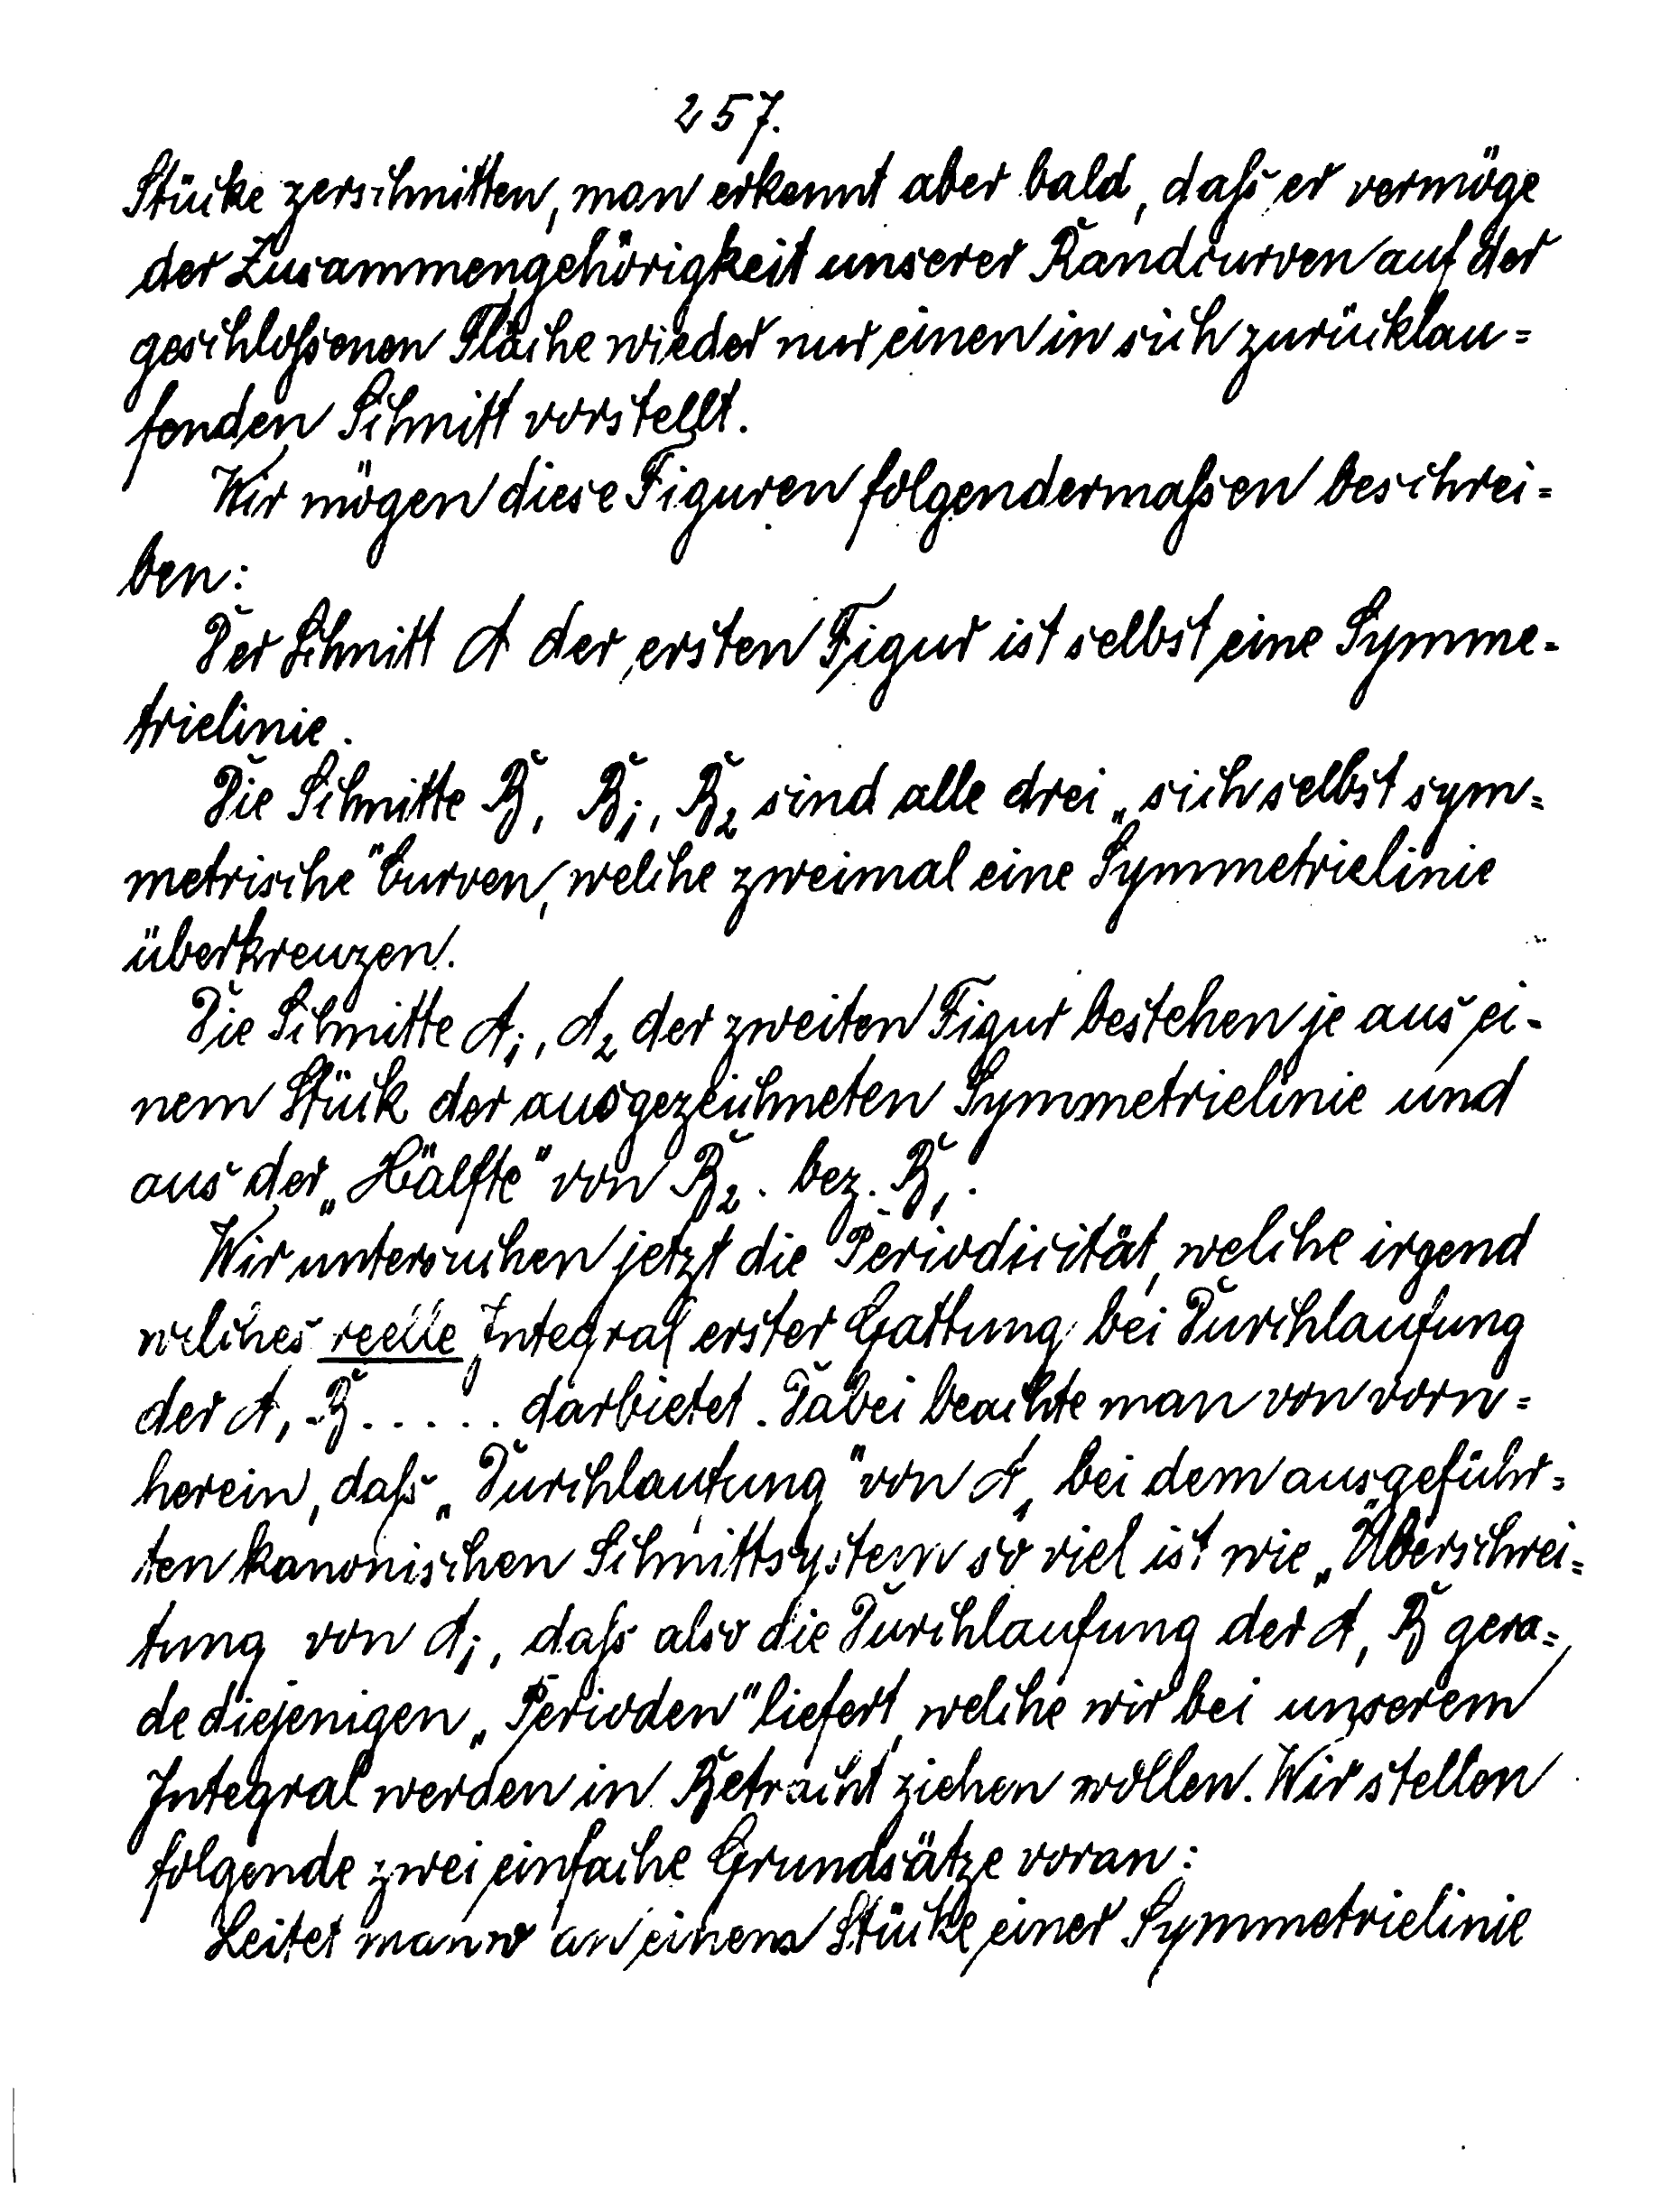 257.
Stücke zerschnitten, man erkennt aber bald, daſs er vermöge
der Zusammengehörigkeit unserer Randcurven auf der
geschloſsenen Fläche wieder nur einen in sich zurücklau=
fenden Schnitt vorstellt.
Wir mögen diese Figuren folgendermaſsen beschrei=
ben:
Der Schnitt A der ersten Figur ist selbst eine Symme-
trielinie.
Die Schnitte B, B₁, B₂ sind alle drei „sich selbst sym=
metrische" Curven, welche zweimal eine Symmetrielinie
überkreuzen.
Die Schnitte A₁, A₂ der zweiten Figur bestehen je aus ei-
nem Stück der ausgezeichneten Symmetrielinie und
aus der „Hälfte" von B₂. bez. B₁.
Wir untersuchen jetzt die Periodicität, welche irgend
welches reelle Integral erster Gattung bei Durchlaufung
der A, B..... darbietet. Dabei beachte man von vorn=
herein, daſs „Durchlaufung" von A, bei dem ausgeführ=
ten kanonischen Schnittsystem so viel ist wie „Überschrei=
tung von A₁, daſs also die Durchlaufung der A, B gera=
de diejenigen „Perioden" liefert, welche wir bei unserem
Integral werden in Betracht ziehen wollen. Wir stellen
folgende zwei einfache Grundsätze voran:
Leitet man w an einem Stücke einer Symmetrielinie